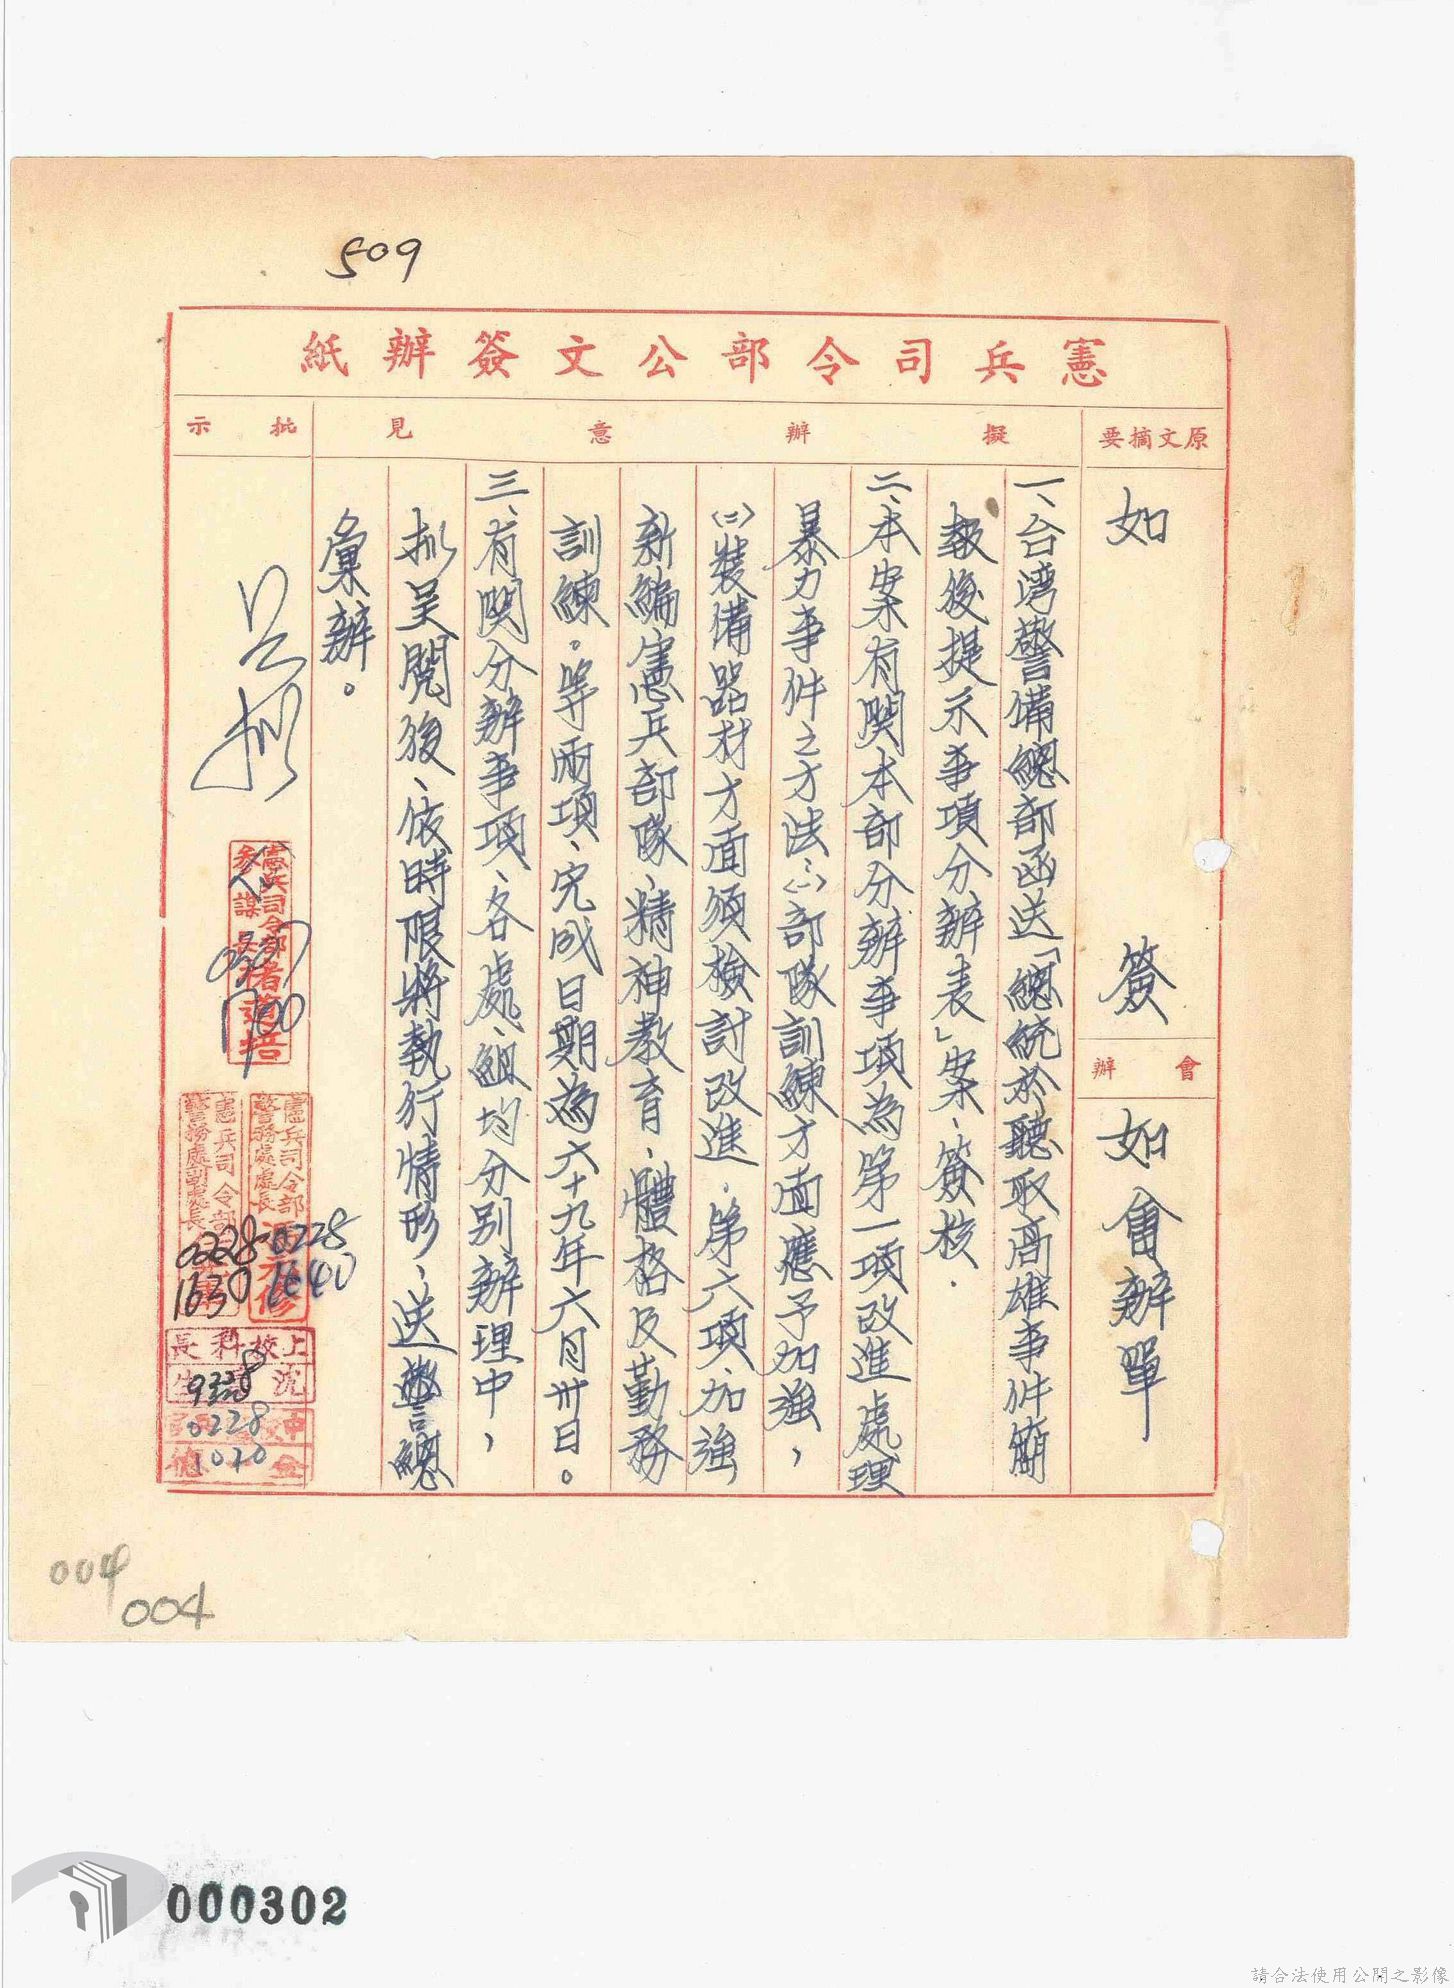 509
憲兵司令部公文簽辦紙
原文摘要
擬辦意見
批示
如簽
會辦
如會辦單
一、台湾警備總部函送「總統於聽取高雄事件簡
報後提示事項分辦表」案、簽核.
二、本案有関本部分辦事項為第一項改進處理
暴力事件之方法:㈠部隊訓練方面應予加強,
㈡裝備器材方面須檢討改進.第六項、加強
新編憲兵部隊、精神教育、體格及勤務
訓練。等兩項、完成日期為六十九年六月卅日。
三、有関分辦事項、各處、組均分別辦理中,
拟呈閱後、依時限將執行情形、送警總
彙辦。
憲兵司令部
參謀長
0307
1700
憲兵司令部
警務處處長
0228
1640
憲兵司令部
警務處副處長
0228
1630
上校科長
沈
0228
0228
1020
004
004
000302
請合法使用公開之影像